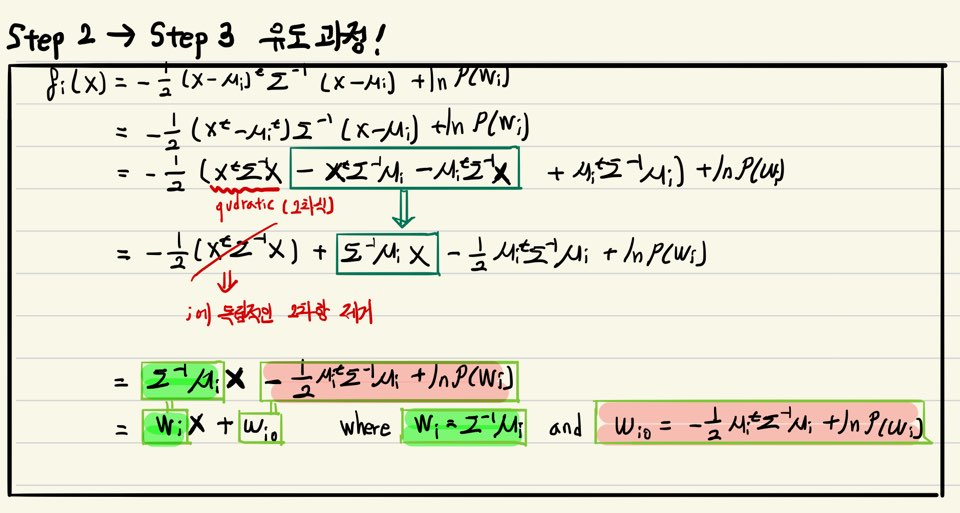 Step 2 → Step 3 유도과정!
fᵢ(x) = -½ (x-μᵢ)ᵗ Σ⁻¹ (x-μᵢ) + ln P(wᵢ)
= -½ (xᵗ-μᵢᵗ) Σ⁻¹ (x-μᵢ) + ln P(wᵢ)
= -½ (xᵗΣ⁻¹x - xᵗΣ⁻¹μᵢ - μᵢᵗΣ⁻¹x + μᵢᵗΣ⁻¹μᵢ) + ln P(wᵢ)
qudratic (2차식)
⇓
= -½ (xᵗΣ⁻¹x) + Σ⁻¹μᵢ x - ½ μᵢᵗΣ⁻¹μᵢ + ln P(wᵢ)
⇓
i에 독립적인 2차항 제거
= Σ⁻¹μᵢ x - ½ μᵢᵗΣ⁻¹μᵢ + ln P(wᵢ)
= wᵢ x + wᵢ₀ where wᵢ = Σ⁻¹μᵢ and wᵢ₀ = -½ μᵢᵗΣ⁻¹μᵢ + ln P(wᵢ)